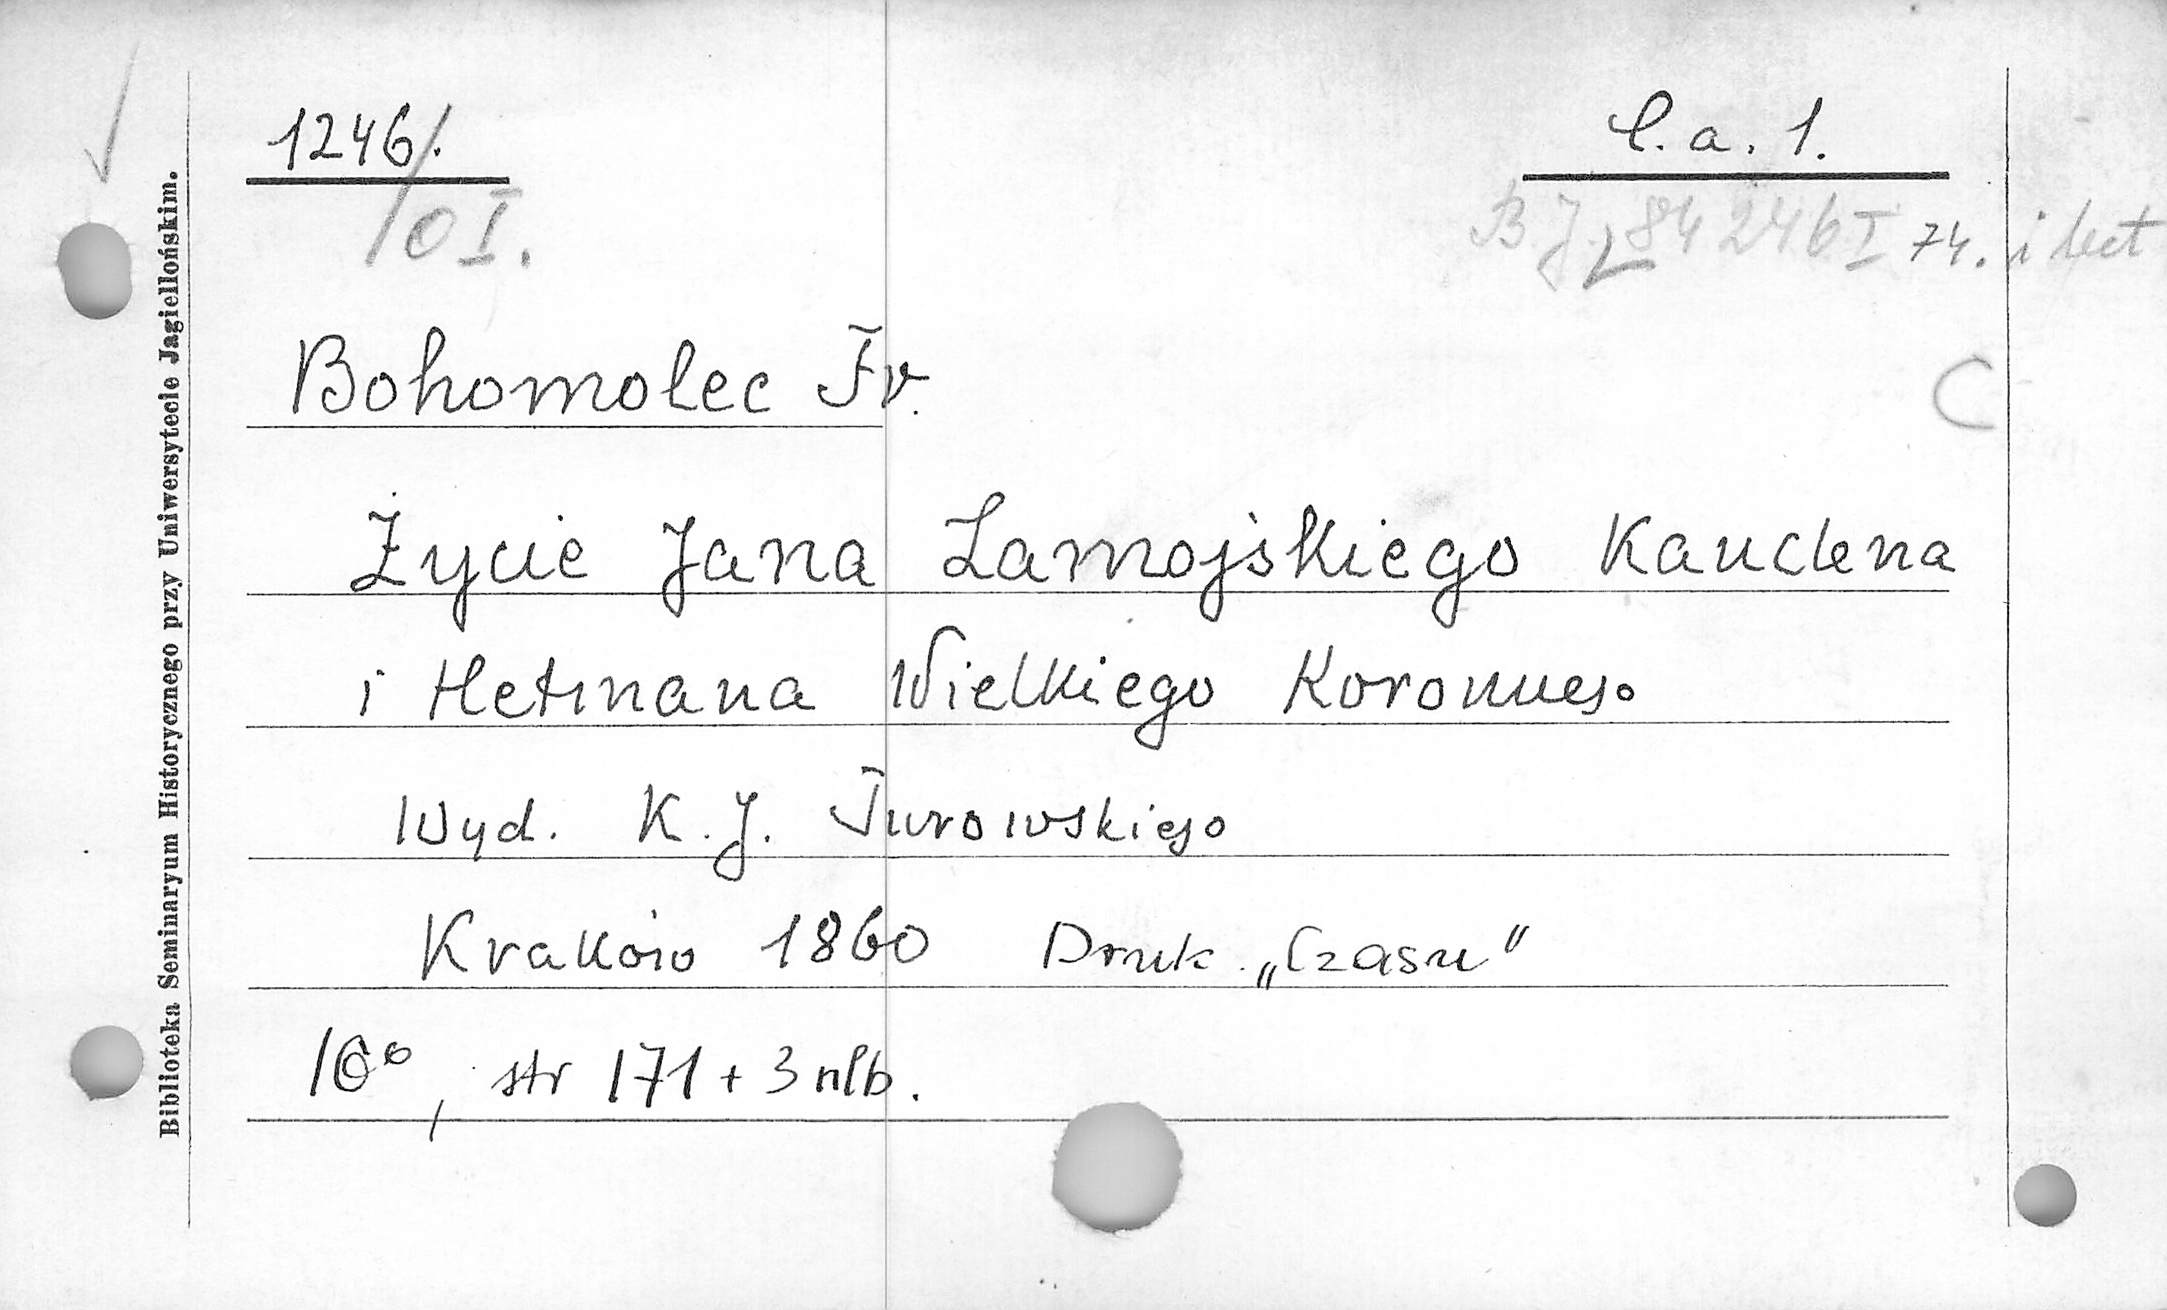 1246/.
/0 I.
C. a. 1.
B. J. 84 246 I 74. i
Bohomolec Fr.
C
Życie Jana Zamojskiego Kanclerza
i Hetmana Wielkiego Koronnego
Wyd. K. J. Turowskiego
Kraków 1860 Druk. „Czasu"
16°, str 171 + 3 nlb.
Biblioteka Seminaryum Historycznego przy Uniwersytecie Jagiellońskim.